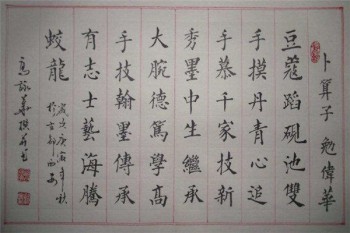 卜算子 勉偉華
豆蔻蹈硯池雙
手摸丹青心追
手慕千家技新
秀墨中生繼承
大腕德篤學高
手技翰墨傳承
有志士藝海騰
蛟龍